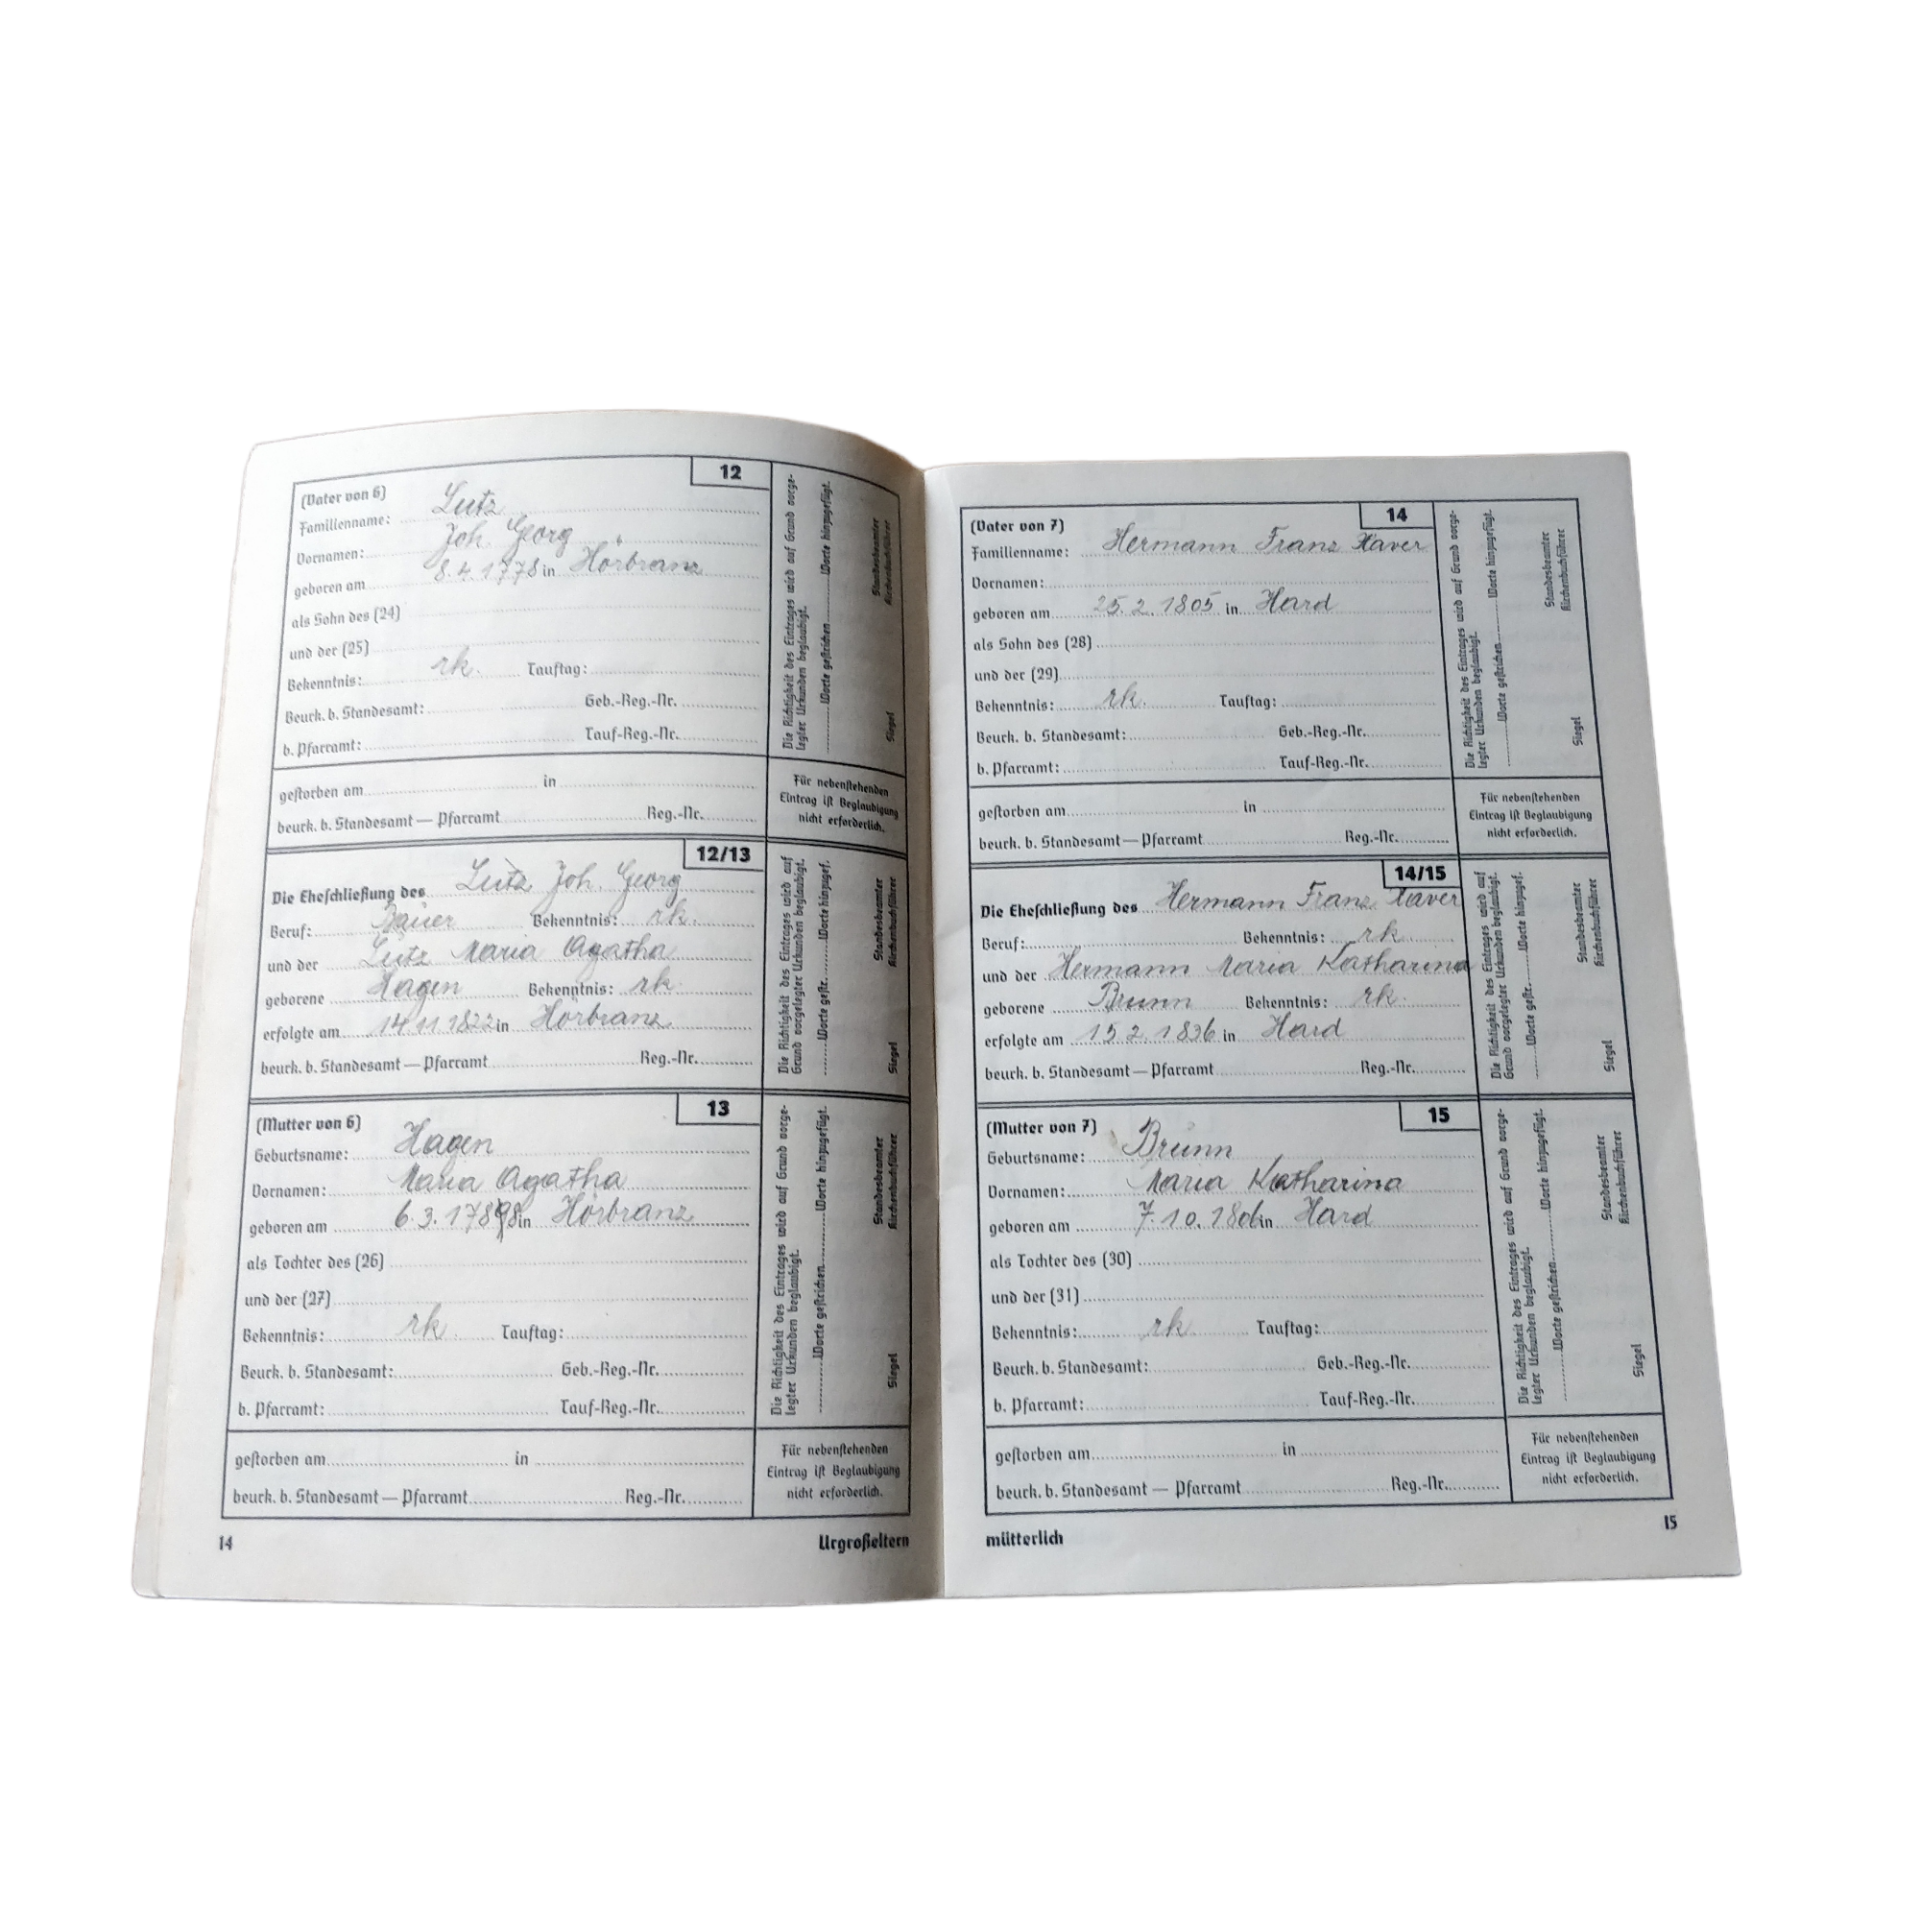 12
(Vater von 6)
Familienname: Lutz
Vornamen: Joh. Georg
geboren am 8.4.1778 in Hörbranz
als Sohn des (24)
und der (25)
Bekenntnis: rk. Tauftag:
Beurk. b. Standesamt: Geb.-Reg.-Nr.
b. Pfarramt: Tauf-Reg.-Nr.
gestorben am in
beurk. b. Standesamt — Pfarramt Reg.-Nr.
Die Richtigkeit des Eintrages wird auf Grund vorge-
legter Urkunden beglaubigt.
Worte gestrichen Worte hinzugefügt.
Siegel Standesbeamter
Kirchenbuchführer
Für nebenstehenden
Eintrag ist Beglaubigung
nicht erforderlich.
12/13
Die Eheschließung des Lutz Joh. Georg
Beruf: Bauer Bekenntnis: rk.
und der Lutz Maria Agatha
geborene Hagen Bekenntnis: rk.
erfolgte am 14.11.1822 in Hörbranz
beurk. b. Standesamt — Pfarramt Reg.-Nr.
Die Richtigkeit des Eintrages wird auf
Grund vorgelegter Urkunden beglaubigt.
Worte gestr. Worte hinzugef.
Siegel Standesbeamter
Kirchenbuchführer
13
(Mutter von 6)
Geburtsname: Hagen
Vornamen: Maria Agatha
geboren am 6.3. in Hörbranz
als Tochter des (26)
und der (27)
Bekenntnis: rk. Tauftag:
Beurk. b. Standesamt: Geb.-Reg.-Nr.
b. Pfarramt: Tauf-Reg.-Nr.
gestorben am in
beurk. b. Standesamt — Pfarramt Reg.-Nr.
Die Richtigkeit des Eintrages wird auf Grund vorge-
legter Urkunden beglaubigt.
Worte gestrichen Worte hinzugefügt.
Siegel Standesbeamter
Kirchenbuchführer
Für nebenstehenden
Eintrag ist Beglaubigung
nicht erforderlich.
14 Urgroßeltern
14
(Vater von 7)
Familienname: Hermann Franz Xaver
Vornamen:
geboren am 25.2.1805 in Hard
als Sohn des (28)
und der (29)
Bekenntnis: rk. Tauftag:
Beurk. b. Standesamt: Geb.-Reg.-Nr.
b. Pfarramt: Tauf-Reg.-Nr.
gestorben am in
beurk. b. Standesamt — Pfarramt Reg.-Nr.
Die Richtigkeit des Eintrages wird auf Grund vorge-
legter Urkunden beglaubigt.
Worte gestrichen Worte hinzugefügt.
Siegel Standesbeamter
Kirchenbuchführer
Für nebenstehenden
Eintrag ist Beglaubigung
nicht erforderlich.
14/15
Die Eheschließung des Hermann Franz Xaver
Beruf: Bekenntnis: rk
und der Hermann Maria Katharina
geborene Brunn Bekenntnis: rk.
erfolgte am 15.2.1836 in Hard
beurk. b. Standesamt — Pfarramt Reg.-Nr.
Die Richtigkeit des Eintrages wird auf
Grund vorgelegter Urkunden beglaubigt.
Worte gestr. Worte hinzugef.
Siegel Standesbeamter
Kirchenbuchführer
15
(Mutter von 7)
Geburtsname: Brunn
Vornamen: Maria Katharina
geboren am 7.10.1806 in Hard
als Tochter des (30)
und der (31)
Bekenntnis: rk. Tauftag:
Beurk. b. Standesamt: Geb.-Reg.-Nr.
b. Pfarramt: Tauf-Reg.-Nr.
gestorben am in
beurk. b. Standesamt — Pfarramt Reg.-Nr.
Die Richtigkeit des Eintrages wird auf Grund vorge-
legter Urkunden beglaubigt.
Worte gestrichen Worte hinzugefügt.
Siegel Standesbeamter
Kirchenbuchführer
Für nebenstehenden
Eintrag ist Beglaubigung
nicht erforderlich.
mütterlich 15